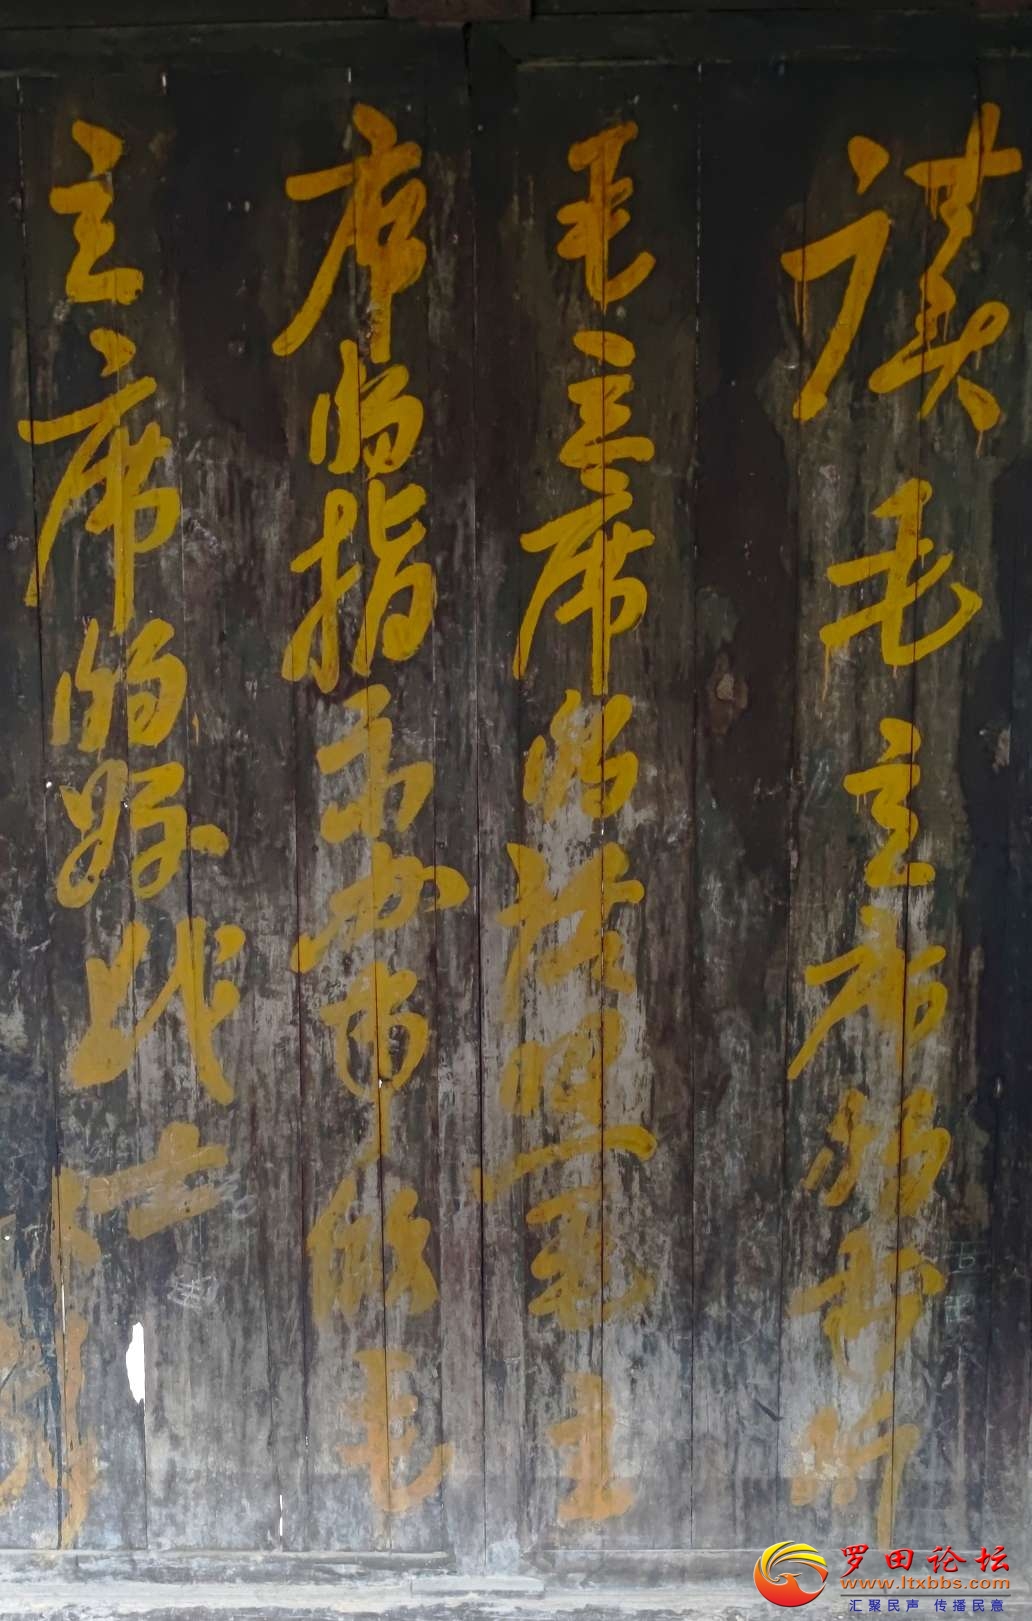 读毛主席的书听
毛主席的话照毛主
席的指示办事做毛
主席的好战士
罗田论坛
www.ltxbbs.com
汇聚民声 传播民意